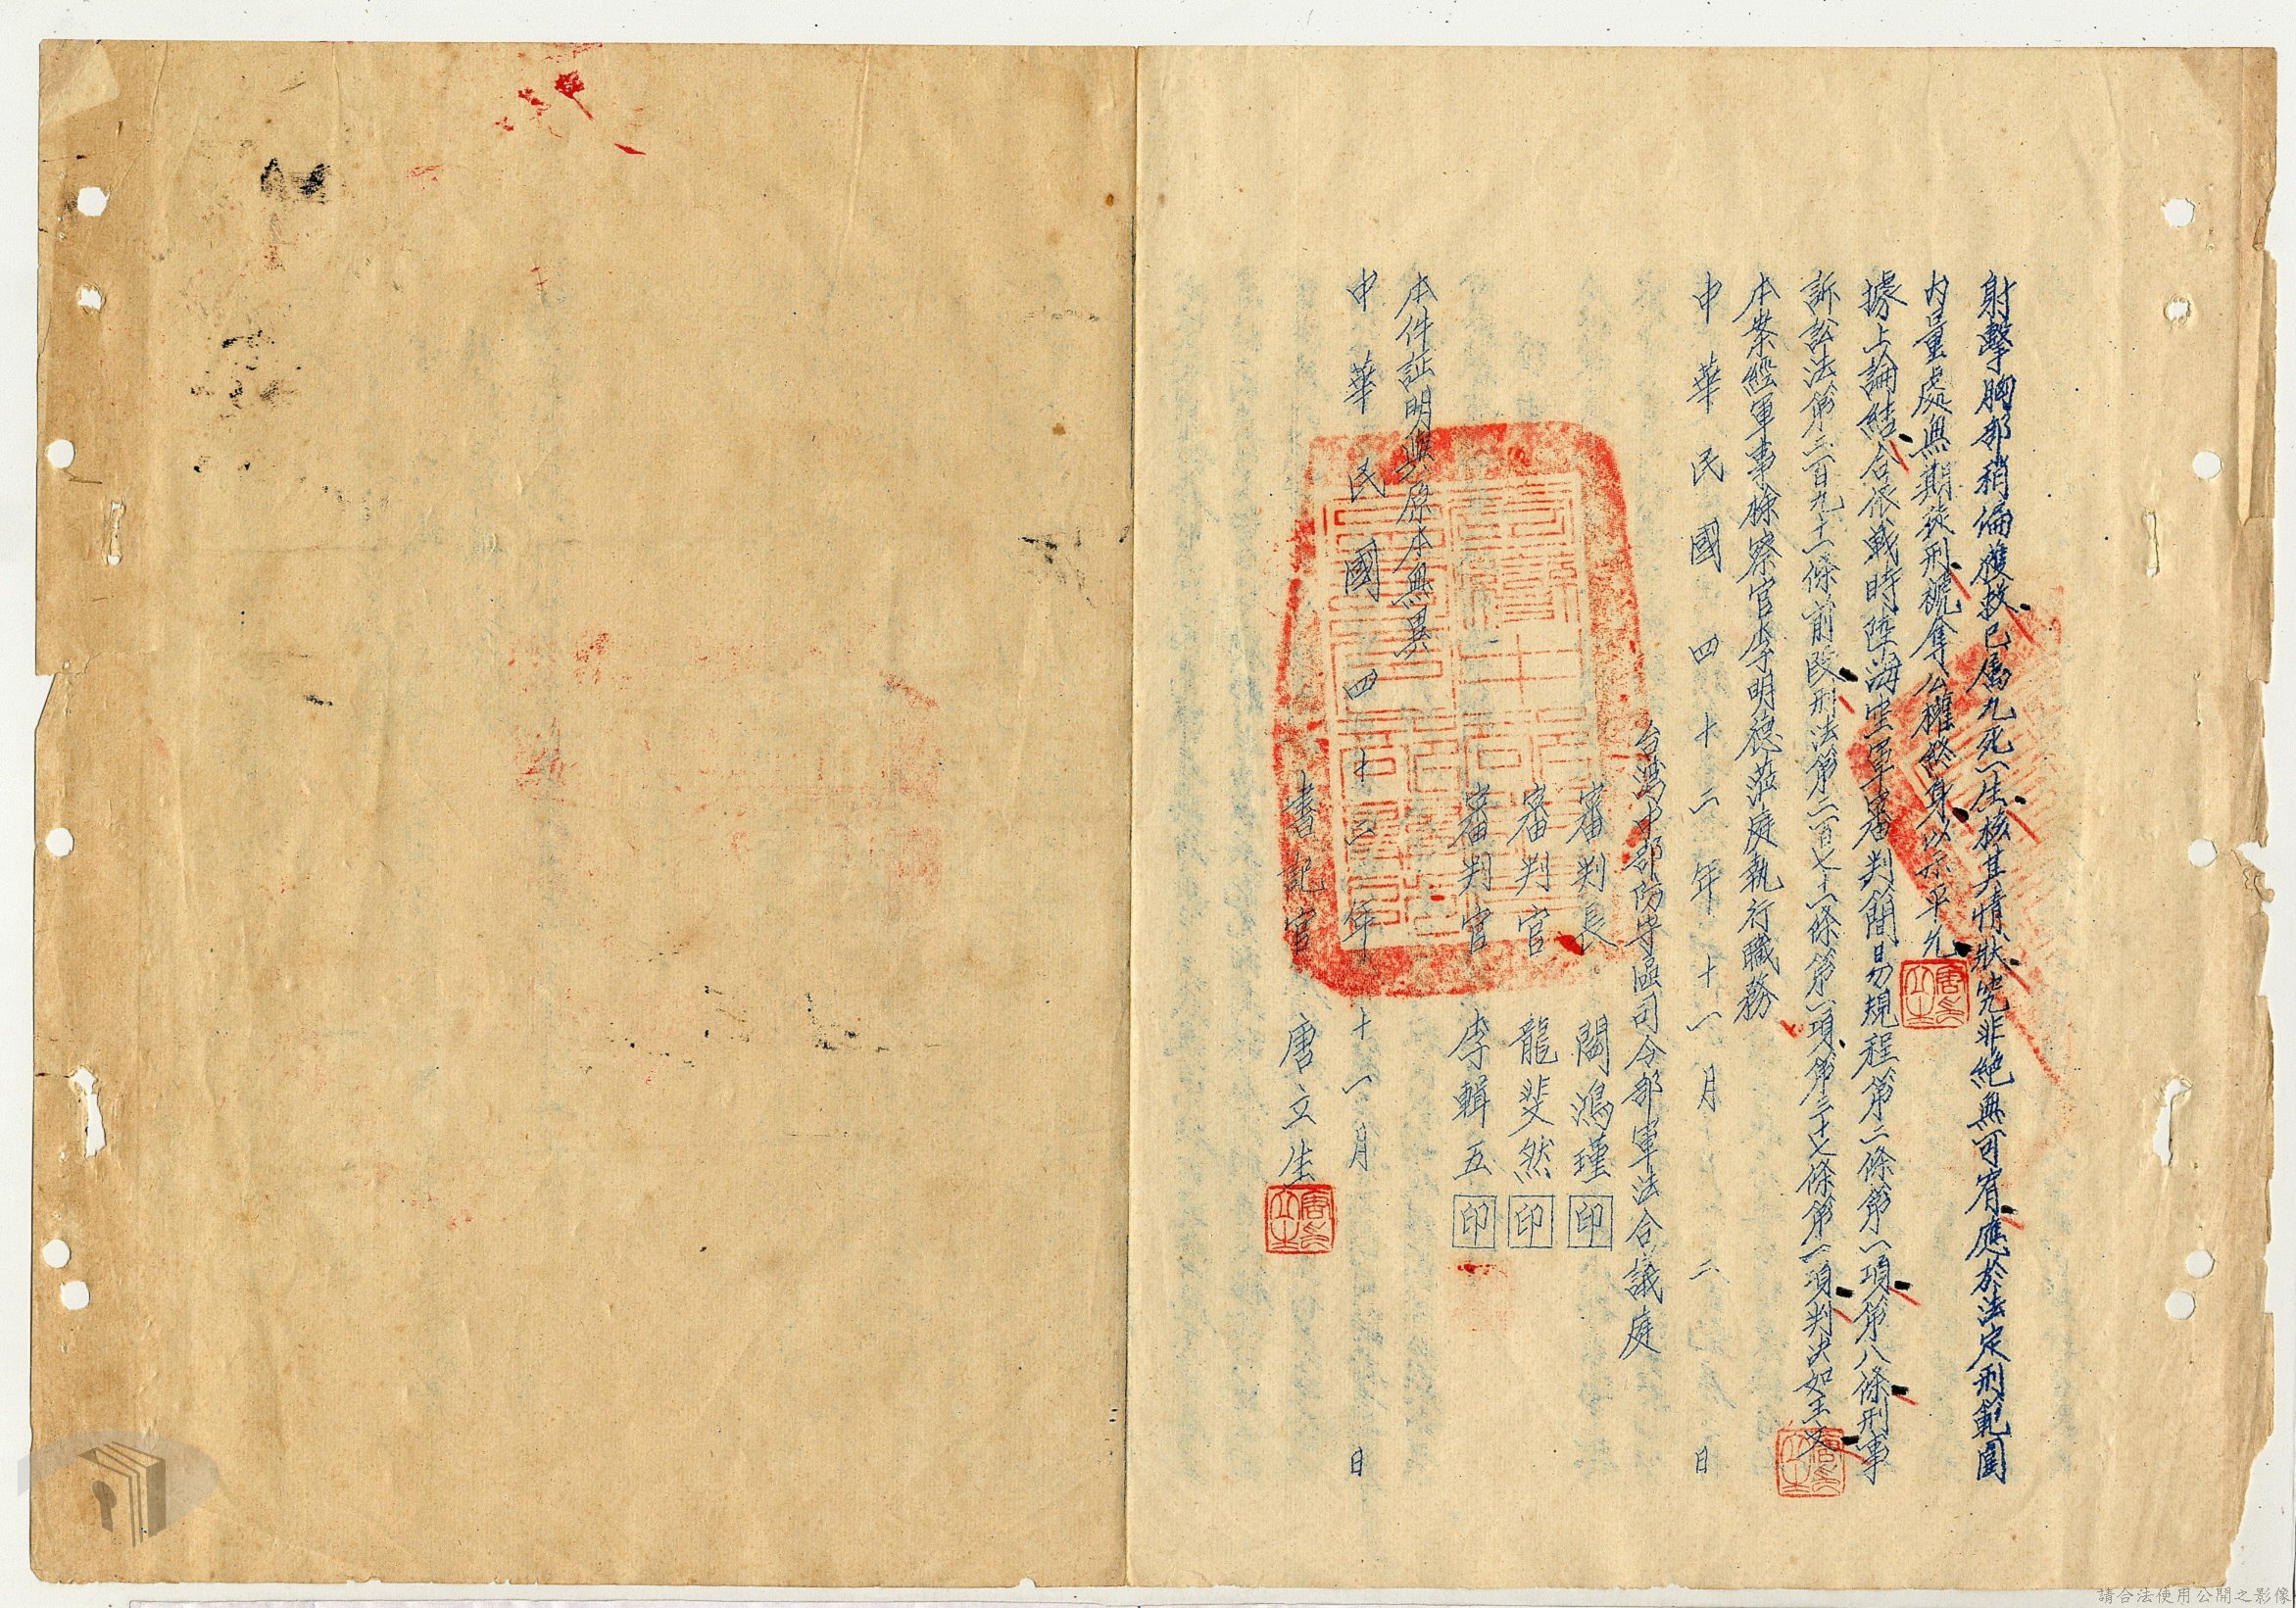 射擊胸部稍偏獲救已屬九死一生核其情狀究非絕無可宥應於法定刑範圍
內量處無期徒刑褫奪公權終身以示平允
據上論結合依戰時陸海空軍審判簡易規程第二條第一項第八條刑事
訴訟法第二百九十一條前段刑法第二百七十一條第一項第三十七條第一項判決如主文
本案經軍事檢察官李明德蒞庭執行職務
中華民國四十二年十一月二日
台灣中部防守區司令部軍法合議庭
審判長 閻鴻瑾 印
審判官 龍斐然 印
審判官 李輯五 印
本件証明與原本無異
中華民國四十二年十一月 日
書記官 唐立生
請合法使用公開之影像